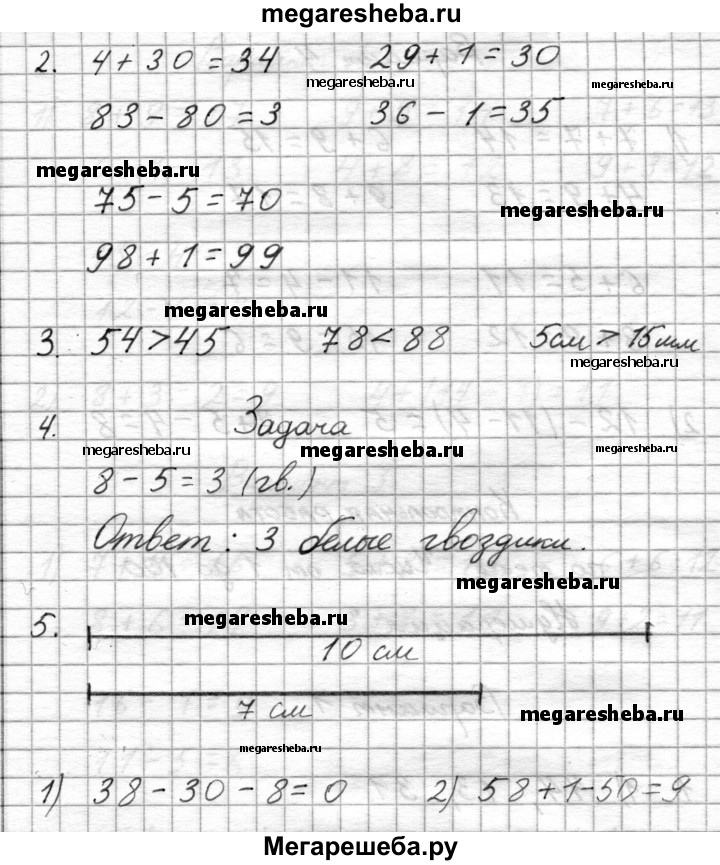 megaresheba.ru
2. 4 + 30 = 34 29 + 1 = 30
megaresheba.ru megaresheba.ru
83 - 80 = 3 36 - 1 = 35
megaresheba.ru
75 - 5 = 70
megaresheba.ru
98 + 1 = 99
megaresheba.ru
3. 54 > 45 78 < 88 5см > 15мм
megaresheba.ru
4. Задача
megaresheba.ru megaresheba.ru megaresheba.ru
8 - 5 = 3 (гв.)
Ответ: 3 белые гвоздики.
megaresheba.ru
5. megaresheba.ru
10 см
7 см
megaresheba.ru
megaresheba.ru
1) 38 - 30 - 8 = 0 2) 58 + 1 - 50 = 9
Мегарешеба.ру